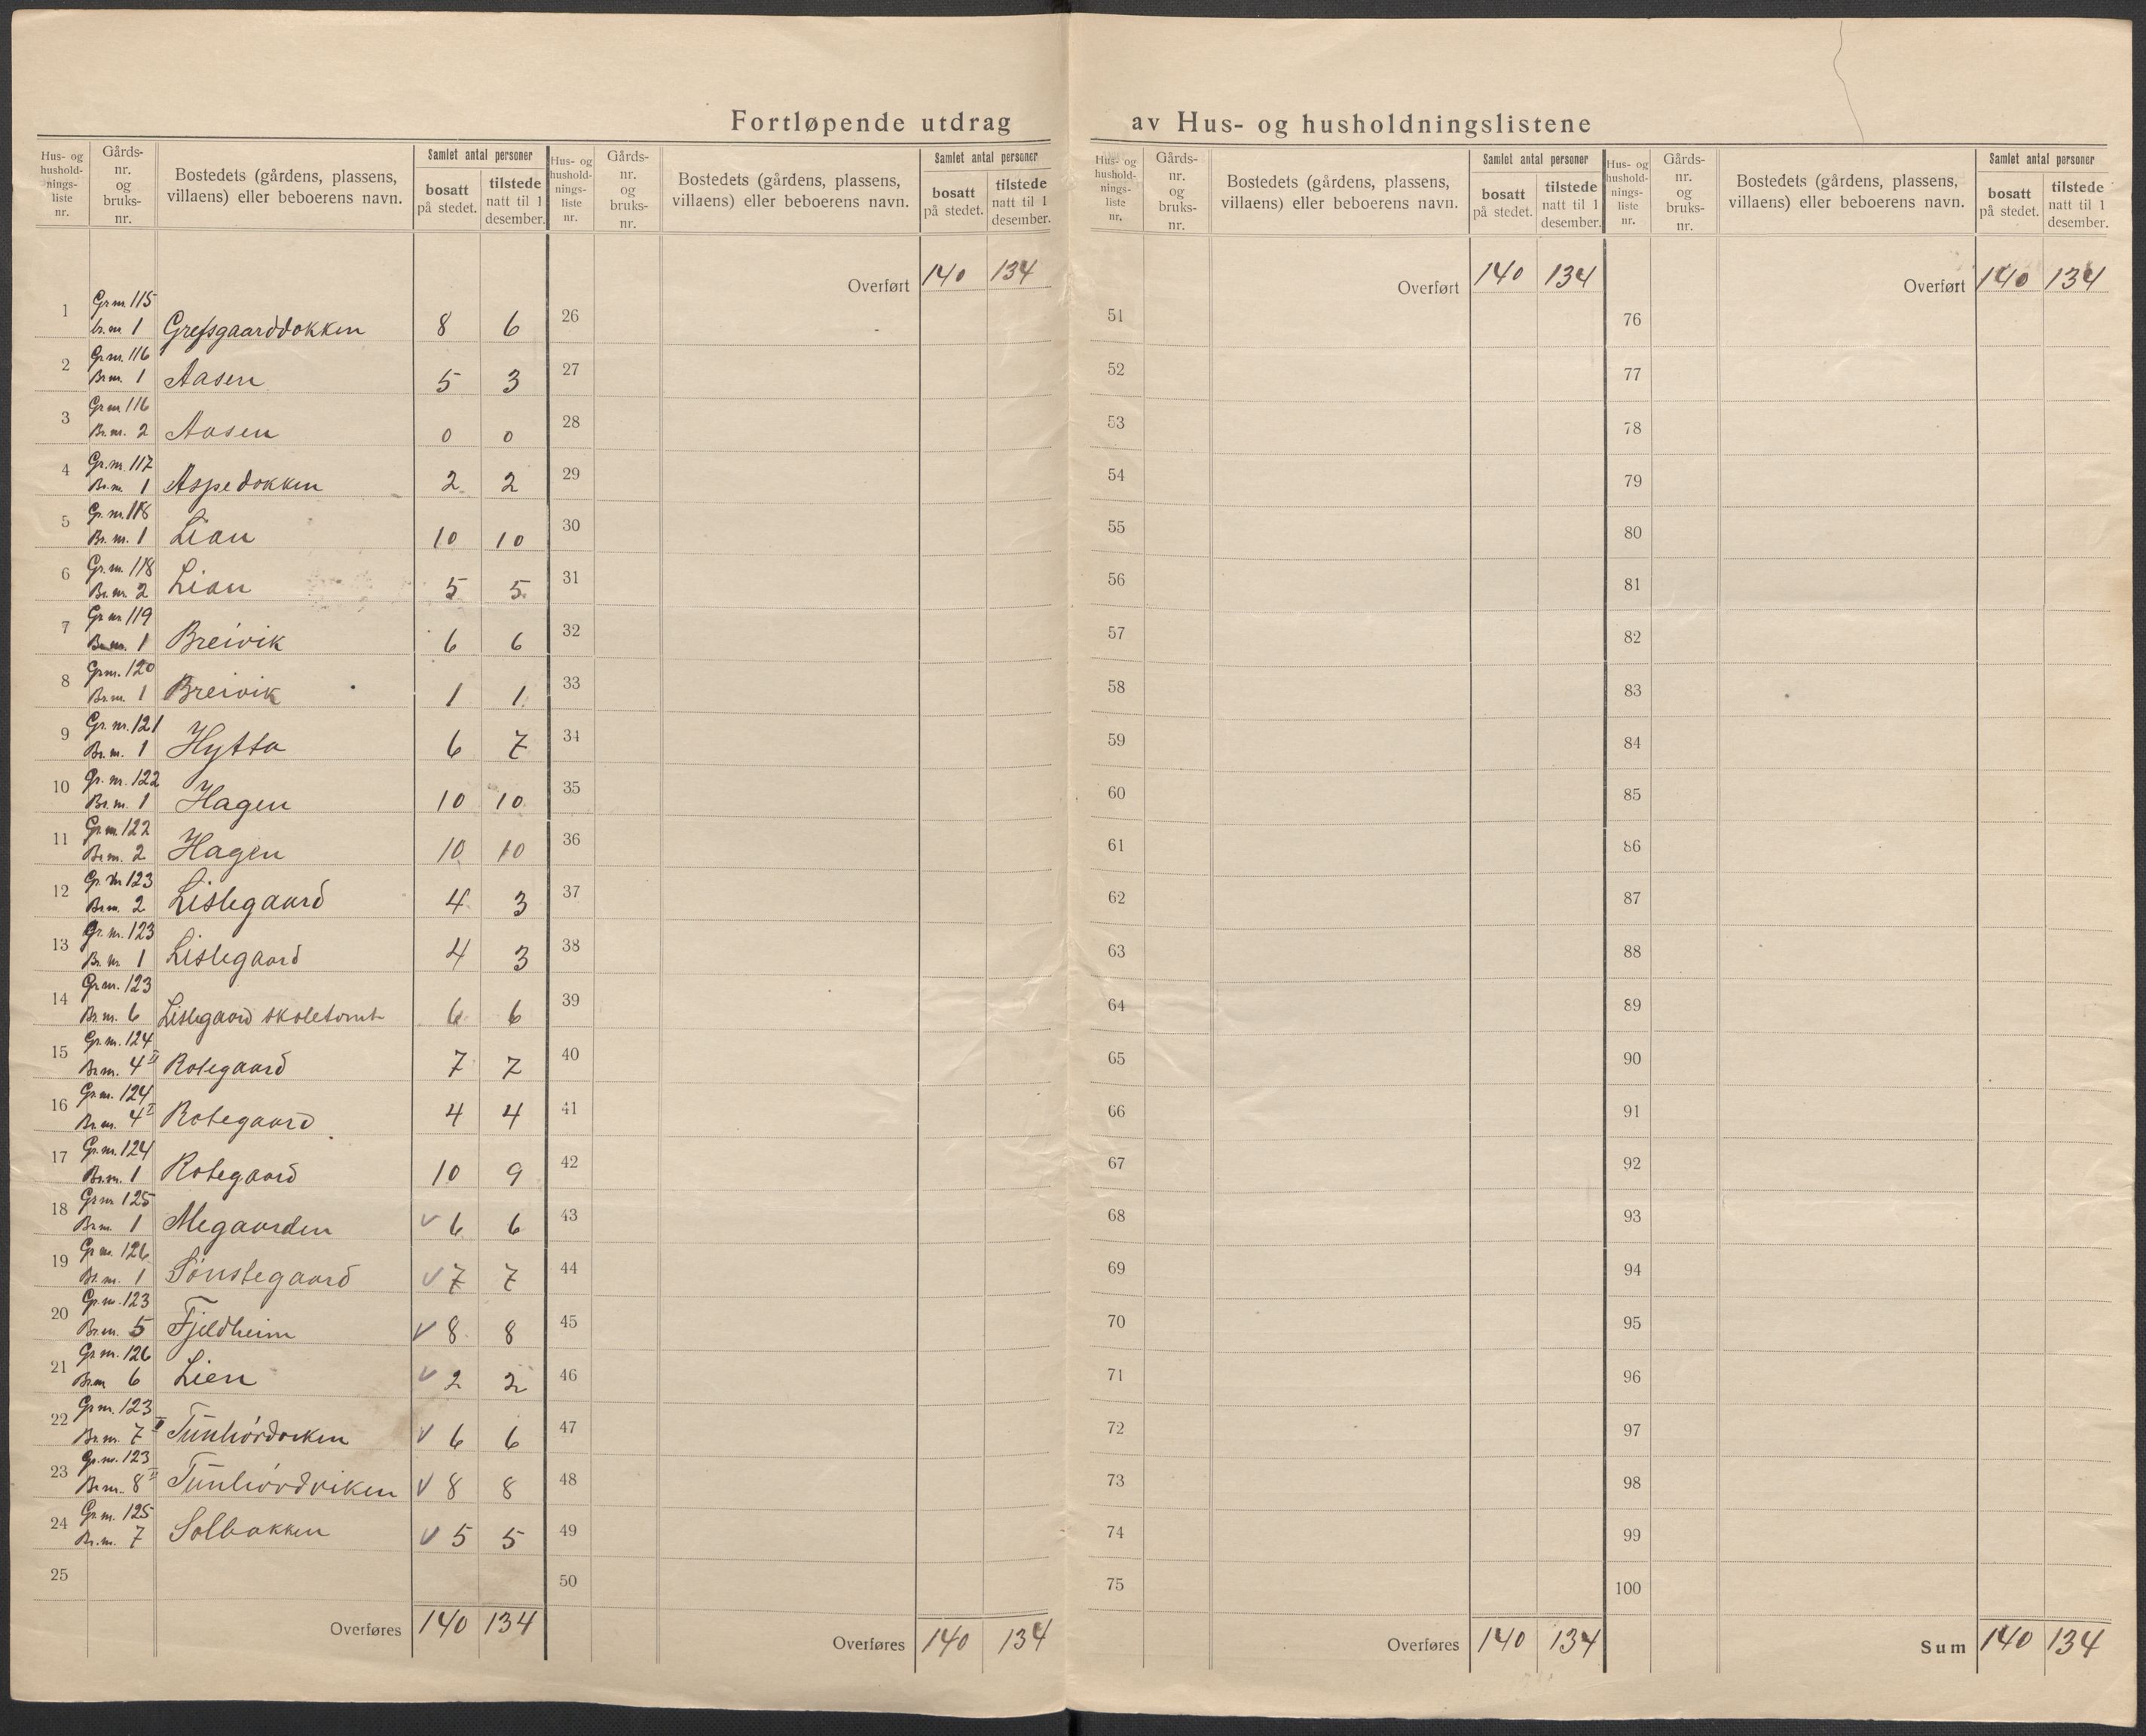 Fortløpende utdrag av Hus- og husholdningslistene
Hus- og hushold-nings-liste nr. Gårds-nr. og bruks-nr. Bostedets (gårdens, plassens, villaens) eller beboerens navn. Samlet antal personer bosatt på stedet. tilstede natt til 1 desember.
Hus- og hushold-nings-liste nr. Gårds-nr. og bruks-nr. Bostedets (gårdens, plassens, villaens) eller beboerens navn. Samlet antal personer bosatt på stedet. tilstede natt til 1 desember.
Hus- og hushold-nings-liste nr. Gårds-nr. og bruks-nr. Bostedets (gårdens, plassens, villaens) eller beboerens navn. Samlet antal personer bosatt på stedet. tilstede natt til 1 desember.
Hus- og hushold-nings-liste nr. Gårds-nr. og bruks-nr. Bostedets (gårdens, plassens, villaens) eller beboerens navn. Samlet antal personer bosatt på stedet. tilstede natt til 1 desember.
1 Gr.nr. 115 br.nr. 1 Grefsgaarddokken 8 6
2 Gr.nr. 116 Br.nr. 1 Aasen 5 3
3 Gr.nr. 116 Br.nr. 2 Aasen 0 0
4 Gr.nr. 117 Br.nr. 1 Aspedokken 2 2
5 Gr.nr. 118 Br.nr. 1 Lian 10 10
6 Gr.nr. 118 Br.nr. 2 Lian 5 5
7 Gr.nr. 119 Br.nr. 1 Breivik 6 6
8 Gr.nr. 120 Br.nr. 1 Breivik 1 1
9 Gr.nr. 121 Br.nr. 1 Hytta 6 7
10 Gr.nr. 122 Br.nr. 1 Hagen 10 10
11 Gr.nr. 122 Br.nr. 2 Hagen 10 10
12 Gr.nr. 123 Br.nr. 2 Lislegaard 4 3
13 Gr.nr. 123 Br.nr. 1 Lislegaard 4 3
14 Gr.nr. 123 Br.nr. 6 Lislegaard skoletomt 6 6
15 Gr.nr. 124 Br.nr. 4 II Rotegaard 7 7
16 Gr.nr. 124 Br.nr. 4 I Rotegaard 4 4
17 Gr.nr. 124 Br.nr. 1 Rotegaard 10 9
18 Gr.nr. 125 Br.nr. 1 Megaarden 6 6
19 Gr.nr. 126 Br.nr. 1 Sønstegaard 7 7
20 Gr.nr. 123 Br.nr. 5 Fjeldheim 8 8
21 Gr.nr. 126 Br.nr. 6 Lien 2 2
22 Gr.nr. 123 Br.nr. 7 6 6
23 Gr.nr. 123 Br.nr. 8 Tunhördviken 8 8
24 Gr.nr. 125 Br.nr. 7 Solbakken 5 5
25
Overføres 140 134
Overført 140 134
26
27
28
29
30
31
32
33
34
35
36
37
38
39
40
41
42
43
44
45
46
47
48
49
50
Overføres 140 134
Overført 140 134
51
52
53
54
55
56
57
58
59
60
61
62
63
64
65
66
67
68
69
70
71
72
73
74
75
Overføres 140 134
Overført 140 134
76
77
78
79
80
81
82
83
84
85
86
87
88
89
90
91
92
93
94
95
96
97
98
99
100
Sum 140 134